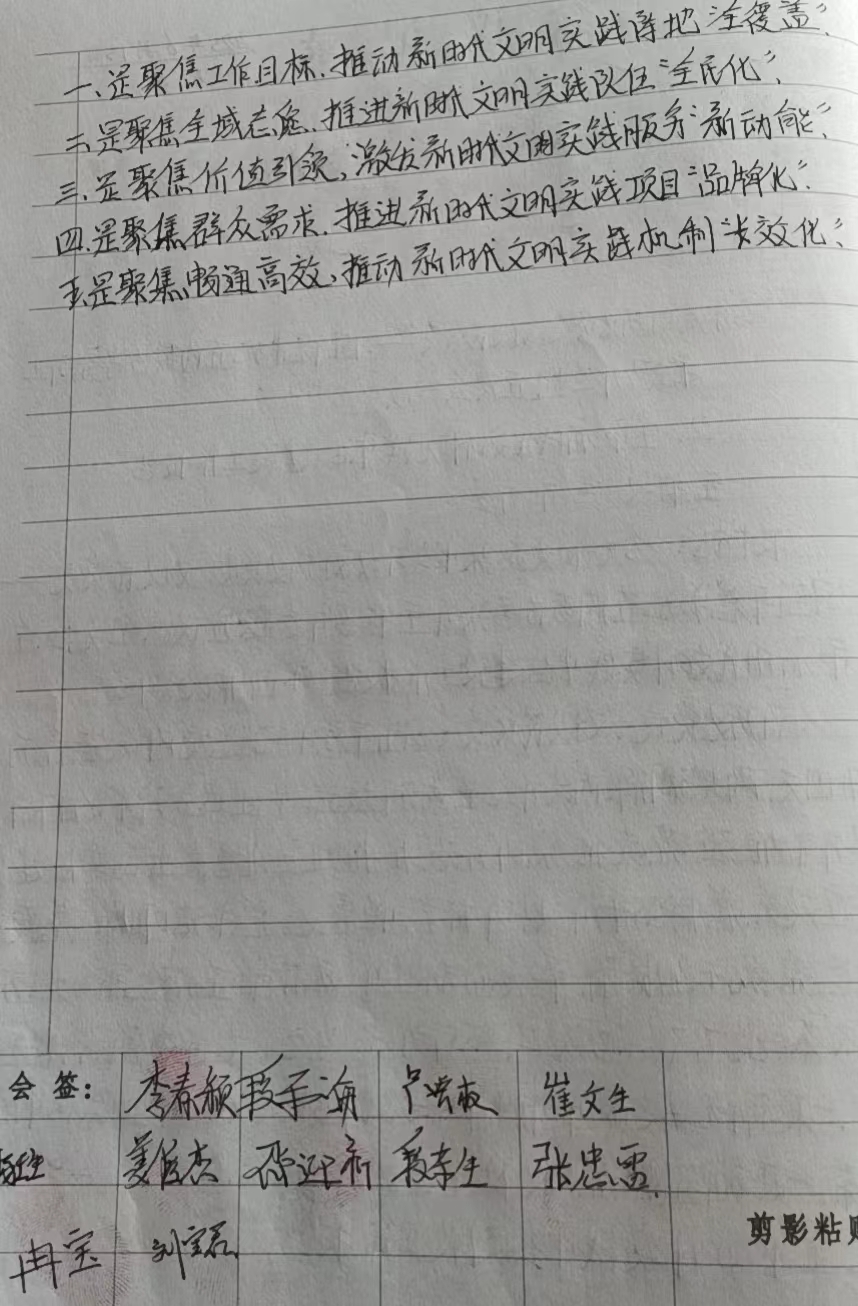 一、是聚焦工作目标,推动新时代文明实践阵地“全覆盖”。
二、是聚焦全域志愿,推进新时代文明实践队伍“全民化”。
三、是聚焦价值引领,激发新时代文明实践服务“新动能”。
四、是聚集群众需求,推进新时代文明实践项目“品牌化”。
五、是聚集畅通高效,推动新时代文明实践机制“长效化”。
会 签: 李春颖 崔文生
张忠雷
冉宝
剪影粘贴